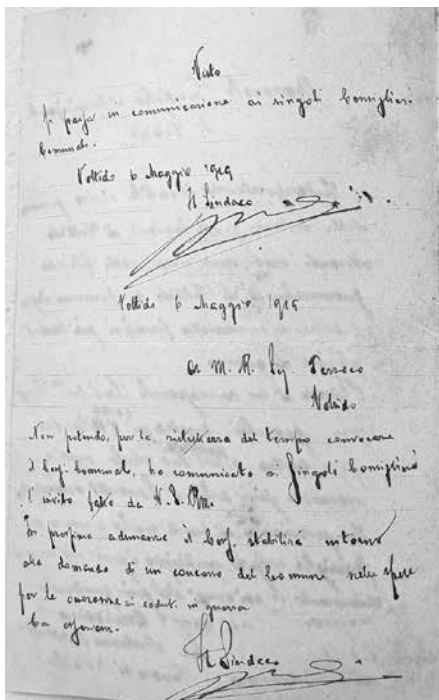 Visto
Si passa in comunicazione ai singoli Consiglieri
Comunali.
Voltido 6 Maggio 1919
Il Sindaco
Voltido 6 Maggio 1919
Al M. R. Sig. Parroco
Voltido
Non potendo, per la ristrettezza del tempo convocare
il Consig. Comunale, ho comunicato ai Singoli Consiglieri
l'invito fatto da V. S. Rma.
In prossima adunanza il Consig. stabilirà intorno
alla domanda di un concorso del Comune nelle spese
per le onoranze ai caduti in guerra
Con osservanza.
Il Sindaco